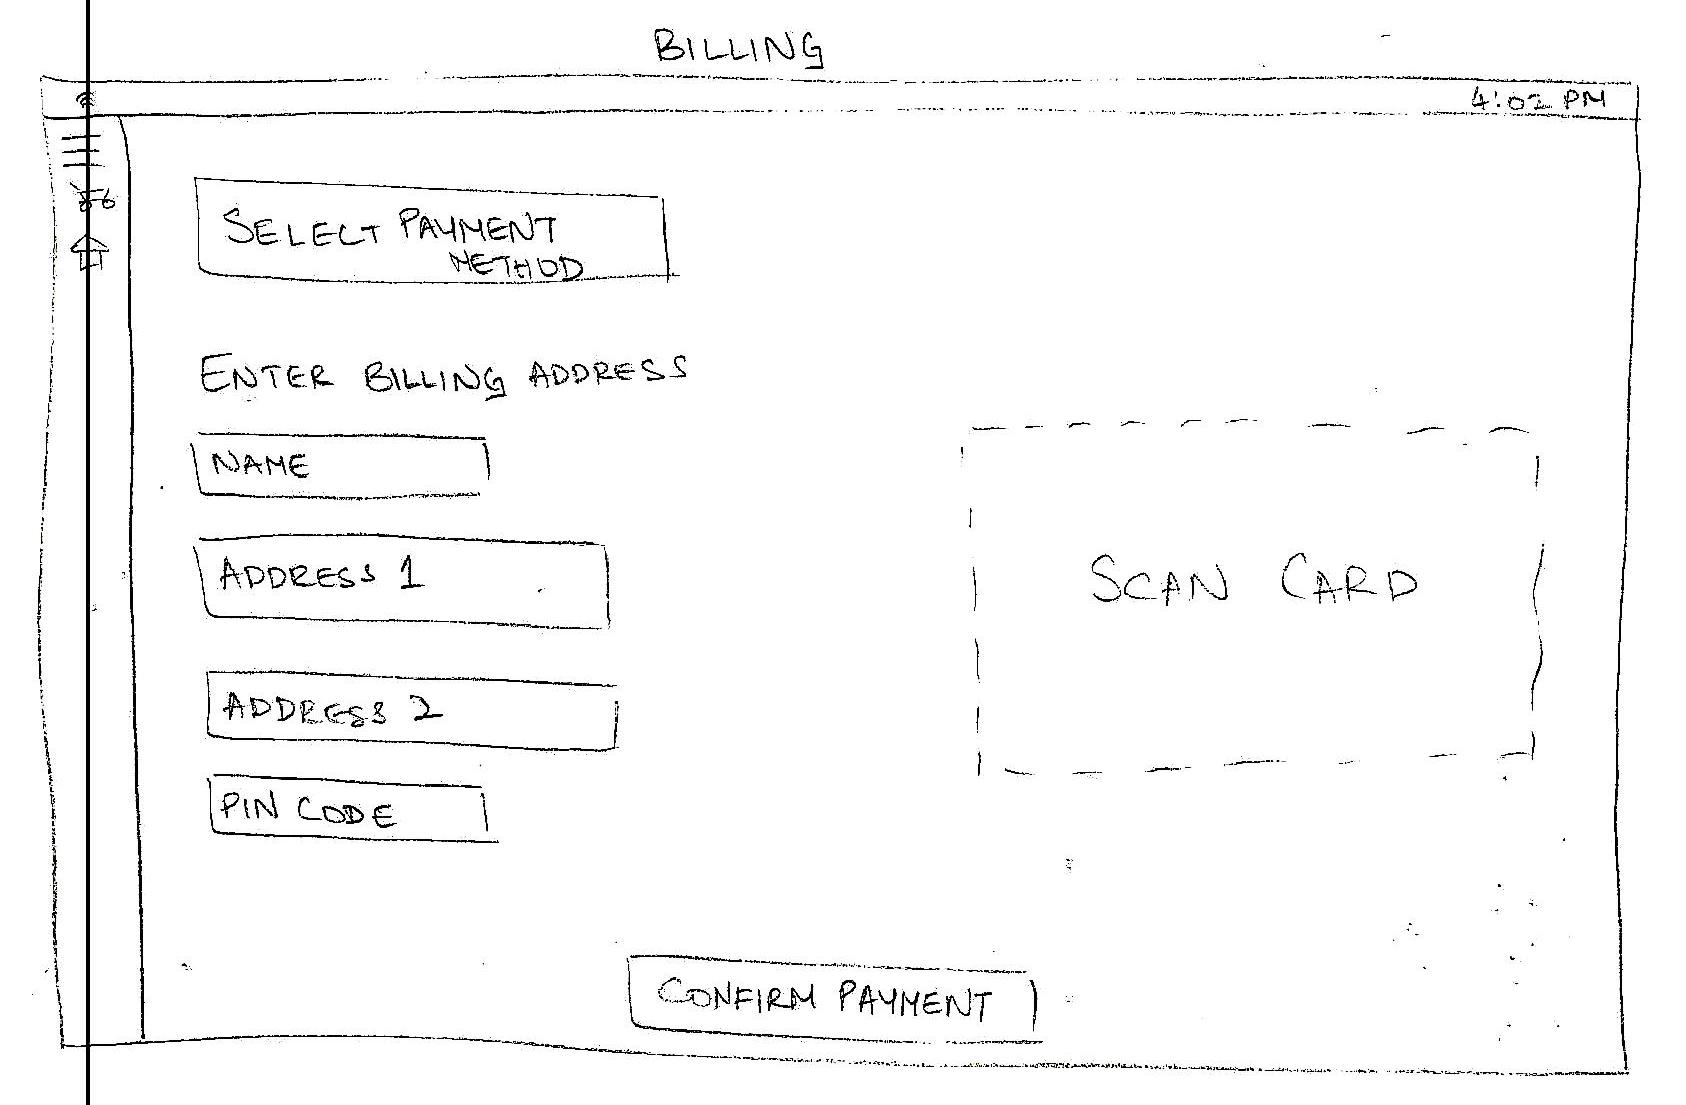 BILLING
4:02 PM
SELECT PAYMENT
METHOD
ENTER BILLING ADDRESS
NAME
ADDRESS 1
ADDRESS 2
PIN CODE
SCAN CARD
CONFIRM PAYMENT